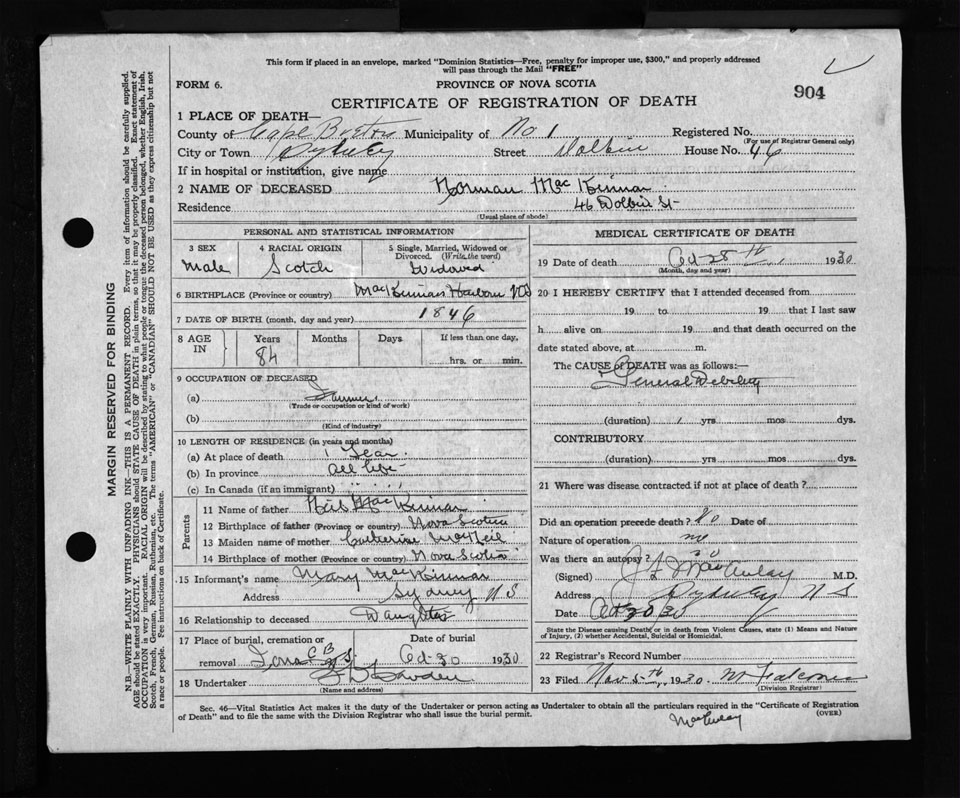 This form if placed in an envelope, marked "Dominion Statistics—Free, penalty for improper use, $300," and properly addressed
will pass through the Mail "FREE"
FORM 6. PROVINCE OF NOVA SCOTIA 904
CERTIFICATE OF REGISTRATION OF DEATH
1 PLACE OF DEATH—
County of Cape Breton Municipality of No 1 Registered No.
(For use of Registrar General only)
City or Town Sydney Street Dolbin House No. 46
If in hospital or institution, give name
2 NAME OF DECEASED Norman MacKinnon
Residence 46 Dolbin St
(Usual place of abode)
PERSONAL AND STATISTICAL INFORMATION
3 SEX 4 RACIAL ORIGIN 5 Single, Married, Widowed or
Divorced. (Write the word)
Male Scotch Widowed
6 BIRTHPLACE (Province or country) MacKinnons Harbour NS
7 DATE OF BIRTH (month, day and year) 1846
8 AGE IN Years Months Days If less than one day,
84 hrs. or min.
9 OCCUPATION OF DECEASED
(a) Farmer
(Trade or occupation or kind of work)
(b)
(Kind of industry)
10 LENGTH OF RESIDENCE (in years and months)
(a) At place of death 1 Year
(b) In province all life
(c) In Canada (if an immigrant)
Parents
11 Name of father Neil MacKinnon
12 Birthplace of father (Province or country) Nova Scotia
13 Maiden name of mother Catherine McNeil
14 Birthplace of mother (Province or country) Nova Scotia
15 Informant's name Mary MacKinnon
Address Sydney N S
16 Relationship to deceased Daughter
17 Place of burial, cremation or Date of burial
removal Iona C B N.S. Oct 30 1930
18 Undertaker
(Name and address)
MEDICAL CERTIFICATE OF DEATH
19 Date of death Oct 28th, 1930
(Month, day and year)
20 I HEREBY CERTIFY that I attended deceased from
19 to 19 that I last saw
h alive on 19 and that death occurred on the
date stated above, at m.
The CAUSE of DEATH was as follows:—
General Debility
(duration) 1 yrs mos dys.
CONTRIBUTORY
(duration) yrs mos dys.
21 Where was disease contracted if not at place of death?
Did an operation precede death? No Date of
Nature of operation no
Was there an autopsy? no
(Signed) J L MacAulay M.D.
Address Sydney N S
Date Oct 30 30
State the Disease causing Death, or in death from Violent Causes, state (1) Means and Nature
of Injury, (2) whether Accidental, Suicidal or Homicidal.
22 Registrar's Record Number
23 Filed Nov 5th, 1930 M Falconer
(Division Registrar)
Sec. 46—Vital Statistics Act makes it the duty of the Undertaker or person acting as Undertaker to obtain all the particulars required in the "Certificate of Registration
of Death" and to file the same with the Division Registrar who shall issue the burial permit. (OVER)
MacAulay
MARGIN RESERVED FOR BINDING
N.B.—WRITE PLAINLY WITH UNFADING INK—THIS IS A PERMANENT RECORD. Every item of information should be carefully supplied.
AGE should be stated EXACTLY. PHYSICIANS should STATE CAUSE OF DEATH in plain terms, so that it may be properly classified. Exact statement of
OCCUPATION is very important. RACIAL ORIGIN will be described by stating to what people or tongue the deceased person belonged, whether English, Irish,
Scotch, French, German, Russian, Ruthenian, etc. The terms "AMERICAN" or "CANADIAN" SHOULD NOT BE USED as they express citizenship but not
a race or people. Fee instructions on back of Certificate.